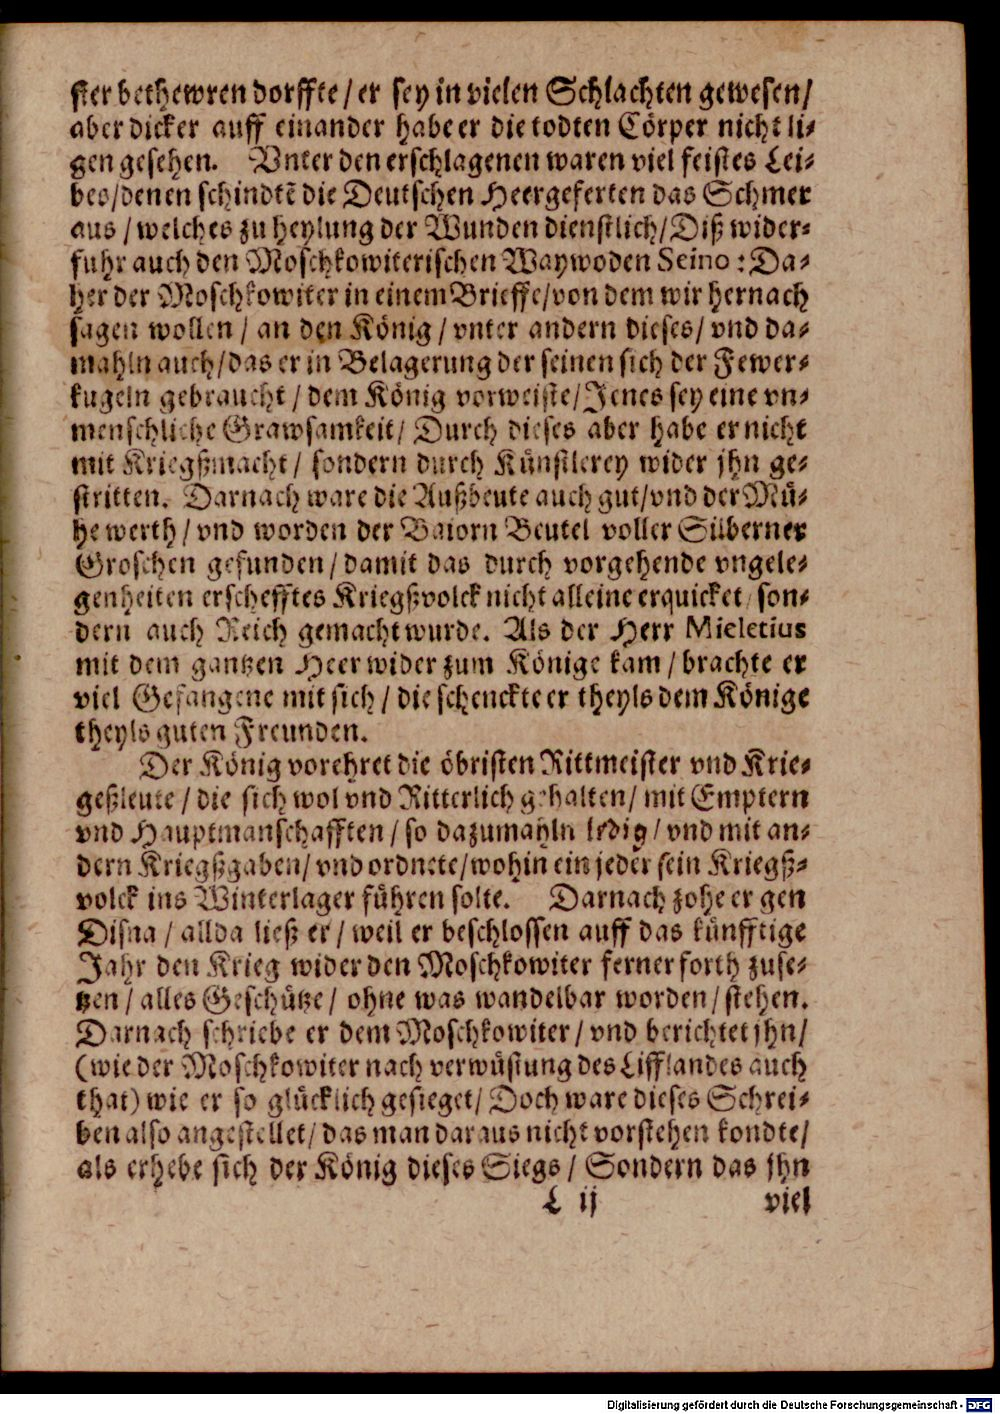 ster bethewren dorffte / er sey in vielen Schlachten gewesen /
aber dicker auff einander habe er die todten Cörper nicht li-
gen gesehen. Vnter den erschlagenen waren viel feistes Lei-
bes / denen schindtē die Deutschen Heergeferten das Schmer
aus / welches zu heylung der Wunden dienstlich / Diß wider-
fuhr auch den Moschkowiterischen Waywoden Seino : Da-
her der Moschkowiter in einem Brieffe / von dem wir hernach
sagen wollen / an den König / vnter andern dieses / vnd da-
mahln auch / das er in Belagerung der seinen sich der Fewer-
kugeln gebraucht / dem König vorweiste / Jenes sey eine vn-
menschliche Grawsamkeit / Durch dieses aber habe er nicht
mit Kriegßmacht / sondern durch Künstlerey wider jhn ge-
stritten. Darnach ware die Außbeute auch gut / vnd der Mü-
he werth / vnd worden der Baiorn Beutel voller Silberner
Groschen gefunden / damit das durch vorgehende vngele-
genheiten erschefftes Kriegßvolck nicht alleine erquicket / son-
dern auch Reich gemacht wurde. Als der Herr Mieletius
mit dem gantzen Heer wider zum Könige kam / brachte er
viel Gefangene mit sich / die schenckte er theyls dem Könige
theyls guten Freunden.
Der König vorehret die öbristen Rittmeister vnd Krie-
geßleute / die sich wol vnd Ritterlich gehalten / mit Emptern
vnd Hauptmanschafften / so dazumahln ledig / vnd mit an-
dern Kriegßgaben / vnd ordnete / wohin ein jeder sein Kriegß-
volck ins Winterlager führen solte. Darnach zohe er gen
Disna / allda ließ er / weil er beschlossen auff das künfftige
Jahr den Krieg wider den Moschkowiter ferner forth zuse-
tzen / alles Geschütze / ohne was wandelbar worden / stehen.
Darnach schriebe er dem Moschkowiter / vnd berichtet jhn /
(wie der Moschkowiter nach verwüstung des Lifflandes auch
that) wie er so glücklich gesieget / Doch ware dieses Schrei-
ben also angestellet / das man daraus nicht vorstehen kondte /
als erhebe sich der König dieses Siegs / Sondern das jhn
L ij viel
Digitalisierung gefördert durch die Deutsche Forschungsgemeinschaft - DFG